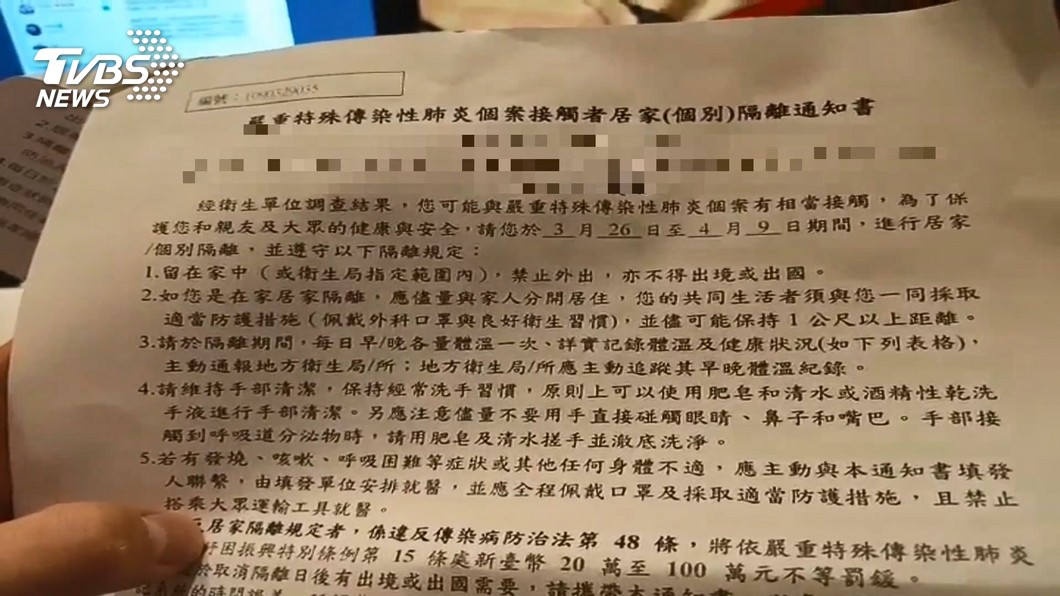 TVBS
NEWS
編號：1090329035
嚴重特殊傳染性肺炎個案接觸者居家(個別)隔離通知書
經衛生單位調查結果，您可能與嚴重特殊傳染性肺炎個案有相當接觸，為了保
護您和親友及大眾的健康與安全，請您於 3 月 26 日至 4 月 9 日期間，進行居家
/個別隔離，並遵守以下隔離規定：
1.留在家中（或衛生局指定範圍內），禁止外出，亦不得出境或出國。
2.如您是在家居家隔離，應儘量與家人分開居住，您的共同生活者須與您一同採取
適當防護措施（佩戴外科口罩與良好衛生習慣)，並儘可能保持 1 公尺以上距離。
3.請於隔離期間，每日早/晚各量體溫一次、詳實記錄體溫及健康狀況(如下列表格)，
主動通報地方衛生局/所；地方衛生局/所應主動追蹤其早晚體溫紀錄。
4.請維持手部清潔，保持經常洗手習慣，原則上可以使用肥皂和清水或酒精性乾洗
手液進行手部清潔。另應注意儘量不要用手直接碰觸眼睛、鼻子和嘴巴。手部接
觸到呼吸道分泌物時，請用肥皂及清水搓手並澈底洗淨。
5.若有發燒、咳嗽、呼吸困難等症狀或其他任何身體不適，應主動與本通知書填發
人聯繫，由填發單位安排就醫，並應全程佩戴口罩及採取適當防護措施，且禁止
搭乘大眾運輸工具就醫。
居家隔離規定者，係違反傳染病防治法第 48 條，將依嚴重特殊傳染性肺炎
紓困振興特別條例第 15 條處新臺幣 20 萬至 100 萬元不等罰鍰。
於取消隔離日後有出境或出國需要，請攜帶本通知書